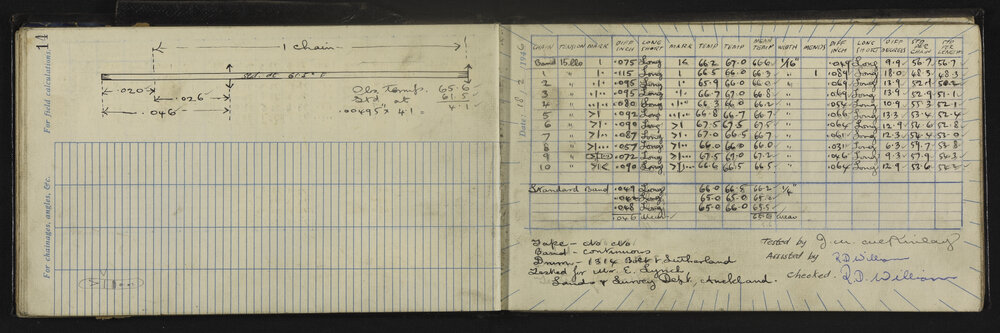 14
For field calculations.
1 chain
Std. at 61.5° F
.020
.026
.046
Obs temp. 65.6
Std at 61.5
4.1
.00495" x 4.1 =
For chainages, angles, &c.
Date: 18/2/1946
CHAIN TENSION MARK DIFF INCH LONG SHORT MARK TEMP TEMP MEAN TEMP WIDTH MENDS DIFF INCH LONG SHORT DIFF DEGREES STD PER CHAIN STD PER LENGTH
Band 15 lbs 1 .075 Long 66.2 67.0 66.6 1/16" .049 Long 9.9 56.7 56.7
1 " 1 .115 Long 1 66.5 66.0 66.3 " 1 .089 Long 18.0 48.3 48.3
2 " .095 Long 65.9 66.0 66.0 " .069 Long 13.9
3 " .095 Long 66.7 67.0 66.8 " .069 Long 13.9 52.9 51.1
4 " .080 Long 66.3 66.0 66.2 " .054 Long 10.9 55.3 52.1
5 " .092 Long 66.8 66.7 66.7 " .066 Long 13.3 53.4 52.4
6 " .090 Long 67.5 67.5 67.5 " .064 Long 12.9 54.6 52.8
7 " .087 Long 67.0 66.5 66.7 " .061 Long 12.3 54.4 53.0
8 " .057 Long 66.0 66.0 66.0 " .031 Long 6.3 59.7 53.8
9 " .072 Long 67.5 67.0 67.2 " .046 Long 9.3 57.9 54.3
10 " .090 Long 66.6 66.5 66.5 " .064 Long 12.9 53.6
Standard Band .049 Long 66.0 66.5 66.2 1/4"
Long 65.0 65.0 65.0
.048 Long 65.0 66.0 65.5
.046 Mean 65.6 Mean
Tape -
Band - continuous
Drum - 1314 Bott & Sutherland
Tested for Mr. E. Lynch
Lands & Survey Dept, Auckland.
Tested by
Assisted by R.D. William
Checked. R.D. William